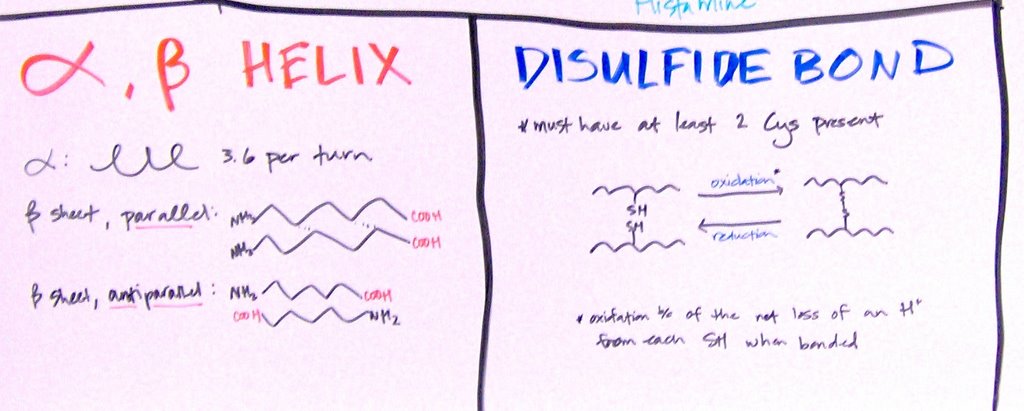 Histamine
α, β HELIX
α: 3.6 per turn
β sheet, parallel: NH₂ COOH
NH₂ COOH
β sheet, antiparallel: NH₂ COOH
COOH NH₂
DISULFIDE BOND
* must have at least 2 Cys present
oxidation*
SH
SH
reduction
S
S
* oxidation b/c of the net loss of an H⁺
from each SH when bonded